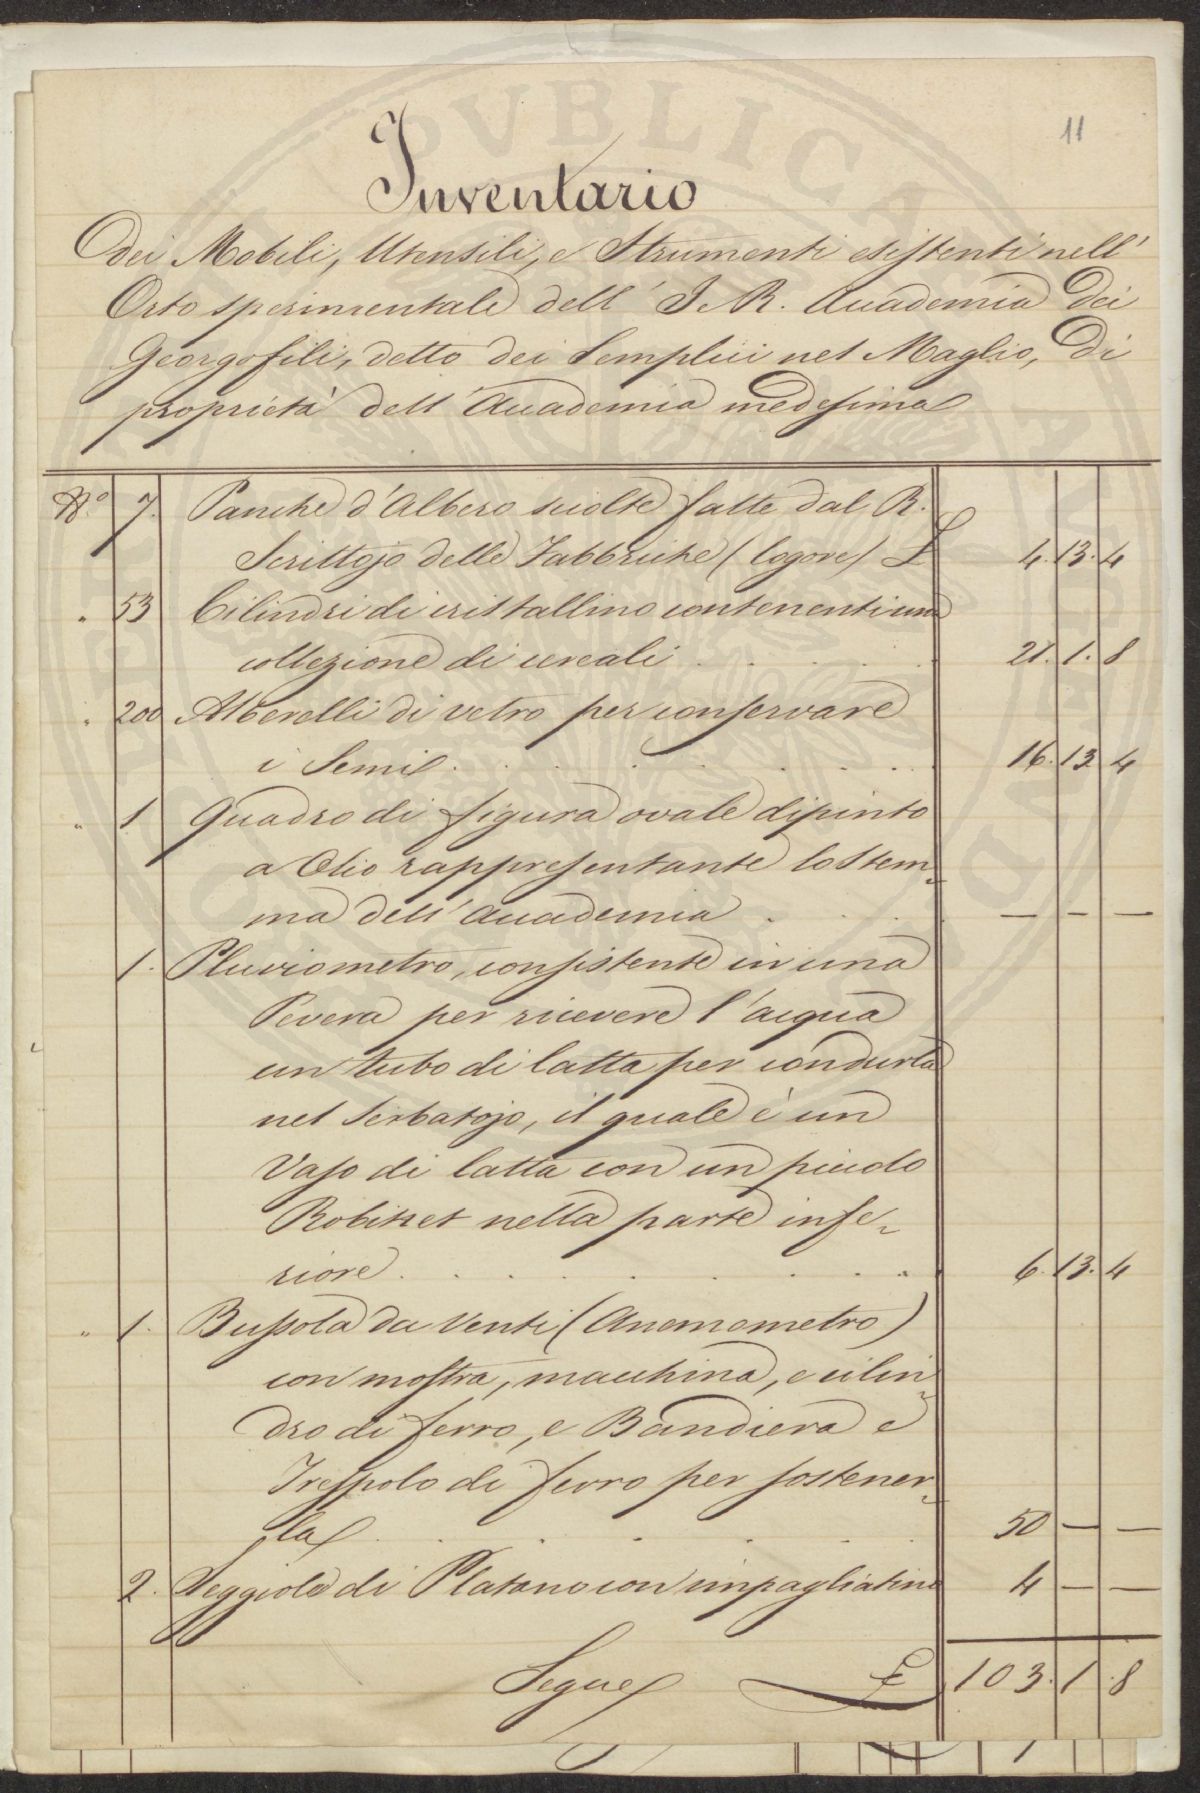 11
Inventario
Dei Mobili, Utensili, e Strumenti esistenti nell'
Orto sperimentale dell' I. e R. Accademia Dei
Georgofili, detto dei Semplici nel Maglio, Di
proprietà dell'Accademia medesima
N.º 7. Panche d'Albero sciolte fatte dal R.
Scrittojo delle Fabbriche (logore) £ 4. 13. 4
" 53 Cilindri di cristallino contenenti una
collezione di cereali . . . . . 21. 1. 8
" 200 Alberelli di vetro per conservare
i Semi . . . . . . . . . 16. 13 4
" 1 Quadro di figura ovale dipinto
a Olio rappresentante lo Stem-
ma dell'Accademia . . . — — —
1. Pluviometro, consistente in una
Pevera per ricevere l'acqua
un tubo di latta per condurla
nel Serbatojo, il quale è un
Vaso di latta con un piccolo
Robinet nella parte infe-
riore . . . . . . . . . 6. 13. 4
" 1. Bussola da Venti (Anemometro)
con mostra, macchina, e cilin-
dro di ferro, e Bandiera e
Trespolo di ferro per sostener-
la . . . . . . 50 — —
2. Seggiole di Platano con impagliatino 4 — —
Segue £ 103. 1. 8